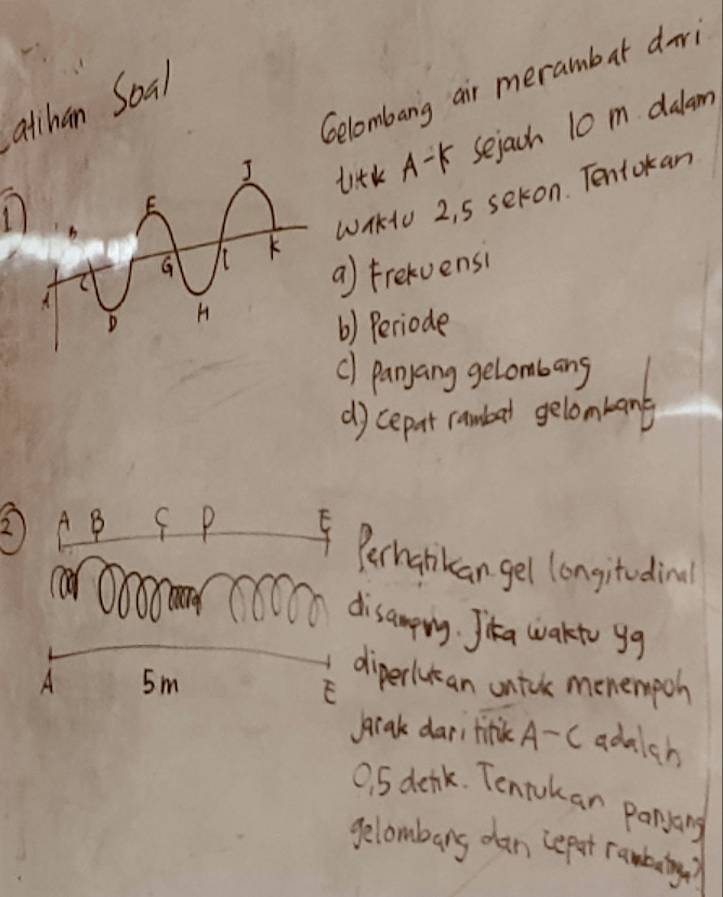 Latihan Soal
1)
B
E
J
A
C
G
I
K
D
H
Gelombang air merambat dari
titik A-K sejauh 10 m dalam
waktu 2,5 sekon. Tentukan
a) Frekuensi
b) Periode
c) Panjang gelombang
d) cepat rambat gelombang
2
A B C D E
A 5m E
Perhatikan gel longitudinal
disamping. Jika waktu yg
diperlukan untuk menempuh
jarak dari titik A-C adalah
0,5 detik. Tentukan panjang
gelombang dan cepat rambatnya?